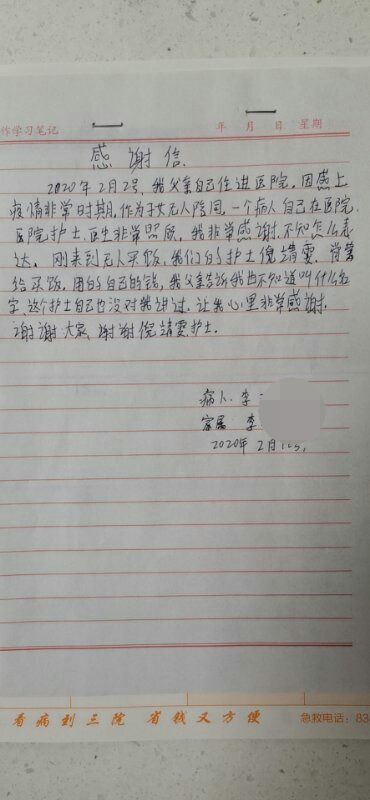 作学习笔记
年 月 日 星期
感谢信
2020年2月2号,我父亲自己住进医院,因感上
疫情非常时期,作为子女无人陪同,一个病人自己在医院
医院护士、医生非常照顾,我非常感谢,不知怎么表
达。刚来到无人买饭,我们的护士倪靖雯,背着
给买饭,用的自己的钱,我父亲告诉我也不知道叫什么名
字,这个护士自己也没对我讲过,让我心里非常感谢,
谢谢大家,谢谢倪靖雯护士。
病人:李
家属:李
2020年2月
看病到三院 省钱又方便
急救电话:83